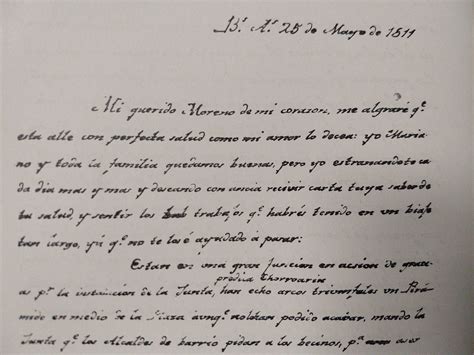 Bs. As. 25 de Mayo de 1811
Mi querido Moreno de mi corason, me algraré qe.
esta alle con perfecta salud como mi amor lo decea: yo Maria-
no y toda la familia quedamos buenas, pero yo estrañandote ca
da dia mas y mas y deseando con ancia recivir carta tuya saber de
tu salud, y sentir los trabajos qe. habrés tenido en un biaje
tan largo, yý qe. no te los é ayudado á pasar:
Estan en una gran funcion en acsion de grac-
a pr. la instalacion de la Junta, han echo arcos triunfales un Pirá
mide en medio de la Plaza aunqe. no la han podido acabar, mando la
Junta qe. los Alcaldes de barrio pidan a los becinos, pa.